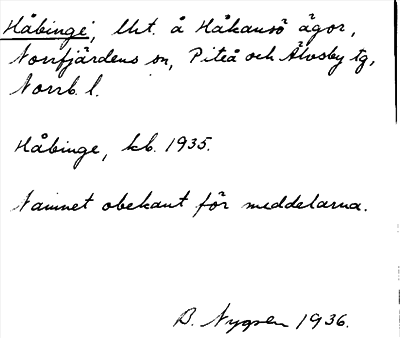 Håbinge, lht. å Håkansö ägor,
Norrfjärdens sn, Piteå och Älvsby tg,
Norrb. l.
Håbinge, kb. 1935.
Namnet obekant för meddelarna.
B. Nygren 1936.